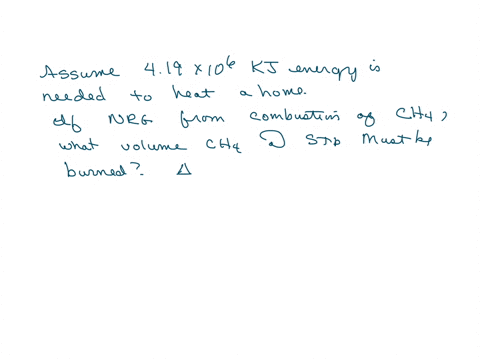 Assume 4.19 x 10⁶ KJ energy is
needed to heat a home.
If NRG from combustion of CH4,
what volume CH4 @ STP Must be
burned? Δ